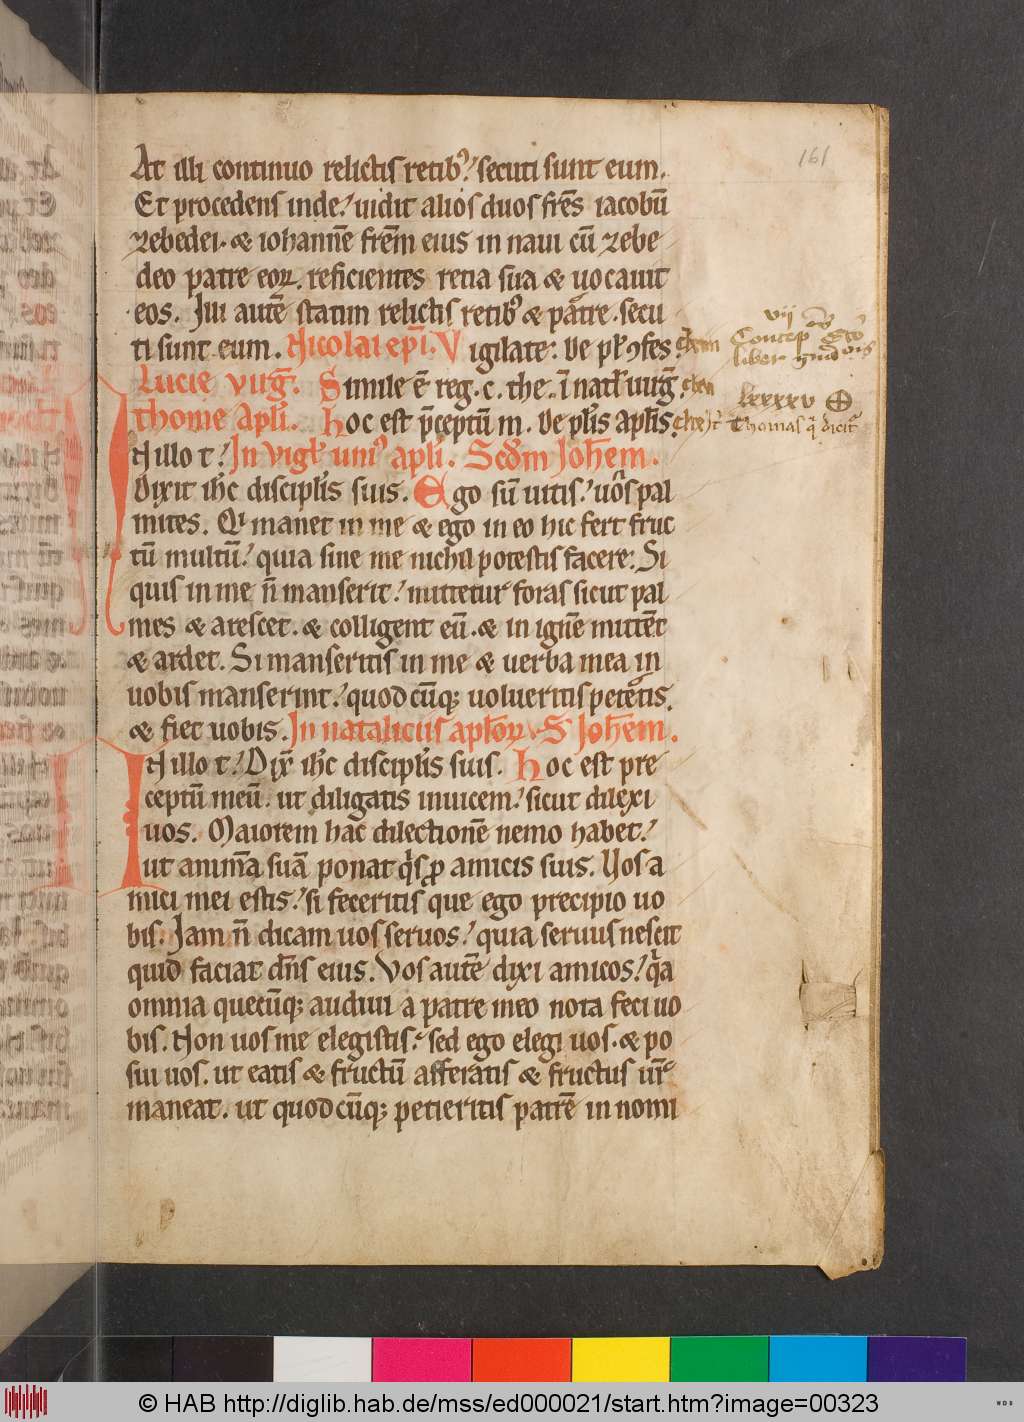 161
At illi continuo relictis retib9 secuti sunt eum.
Et procedens inde uidit alios duos frēs iacobū
zebedei. & iohannē frēm eius in naui cū zebe
deo patre eoꝝ. reficientes retia sua & uocauit
eos. Illi autē statim relictis retib9 & patre. secu
ti sunt eum. Nicolai epī. Vigilate. De
vij
Concep
liber
Lucie virḡ. Simile ē reg. c. the. ī
lxxxxv
thome apli. Hoc est p̄ceptū m. De pl̄is apl̄is.
Thomas
N illo t. In vigl̄ uni9 apli. Scdm Joh̄em.
Dixit ih̄c discipl̄is suis. Ego sū uitis. uos pal
mites. Qi manet in me & ego in eo hic fert fruc
tū multū. quia sine me nichil potestis facere. Si
quis in me n̄ manserit. mittetur foras sicut pal
mes & arescet. & colligent eū. & in ignē mittēt
& ardet. Si manseritis in me & uerba mea in
uobis manserint. quodcūq; uolueritis petetis.
& fiet uobis. In nataliciis apl̄oꝝ. S Joh̄em.
N illo t. Dix̄ ih̄c discipl̄is suis. Hoc est pre
ceptū meū. ut diligatis inuicem. sicut dilexi
uos. Maiorem hac dilectionē nemo habet.
ut animā suā ponat q̄s ꝓ amicis suis. Uos a
mici mei estis. si feceritis que ego precipio uo
bis. Jam n̄ dicam uos seruos. quia seruus nescit
quid faciat dn̄s eius. Vos autē dixi amicos. q̄a
omnia quecūq; audiui a patre meo nota feci uo
bis. Non uos me elegistis. sed ego elegi uos. & po
sui uos. ut eatis & fructū afferatis & fructus ur̄
maneat. ut quodcūq; petieritis patrē in nomi
© HAB http://diglib.hab.de/mss/ed000021/start.htm?image=00323